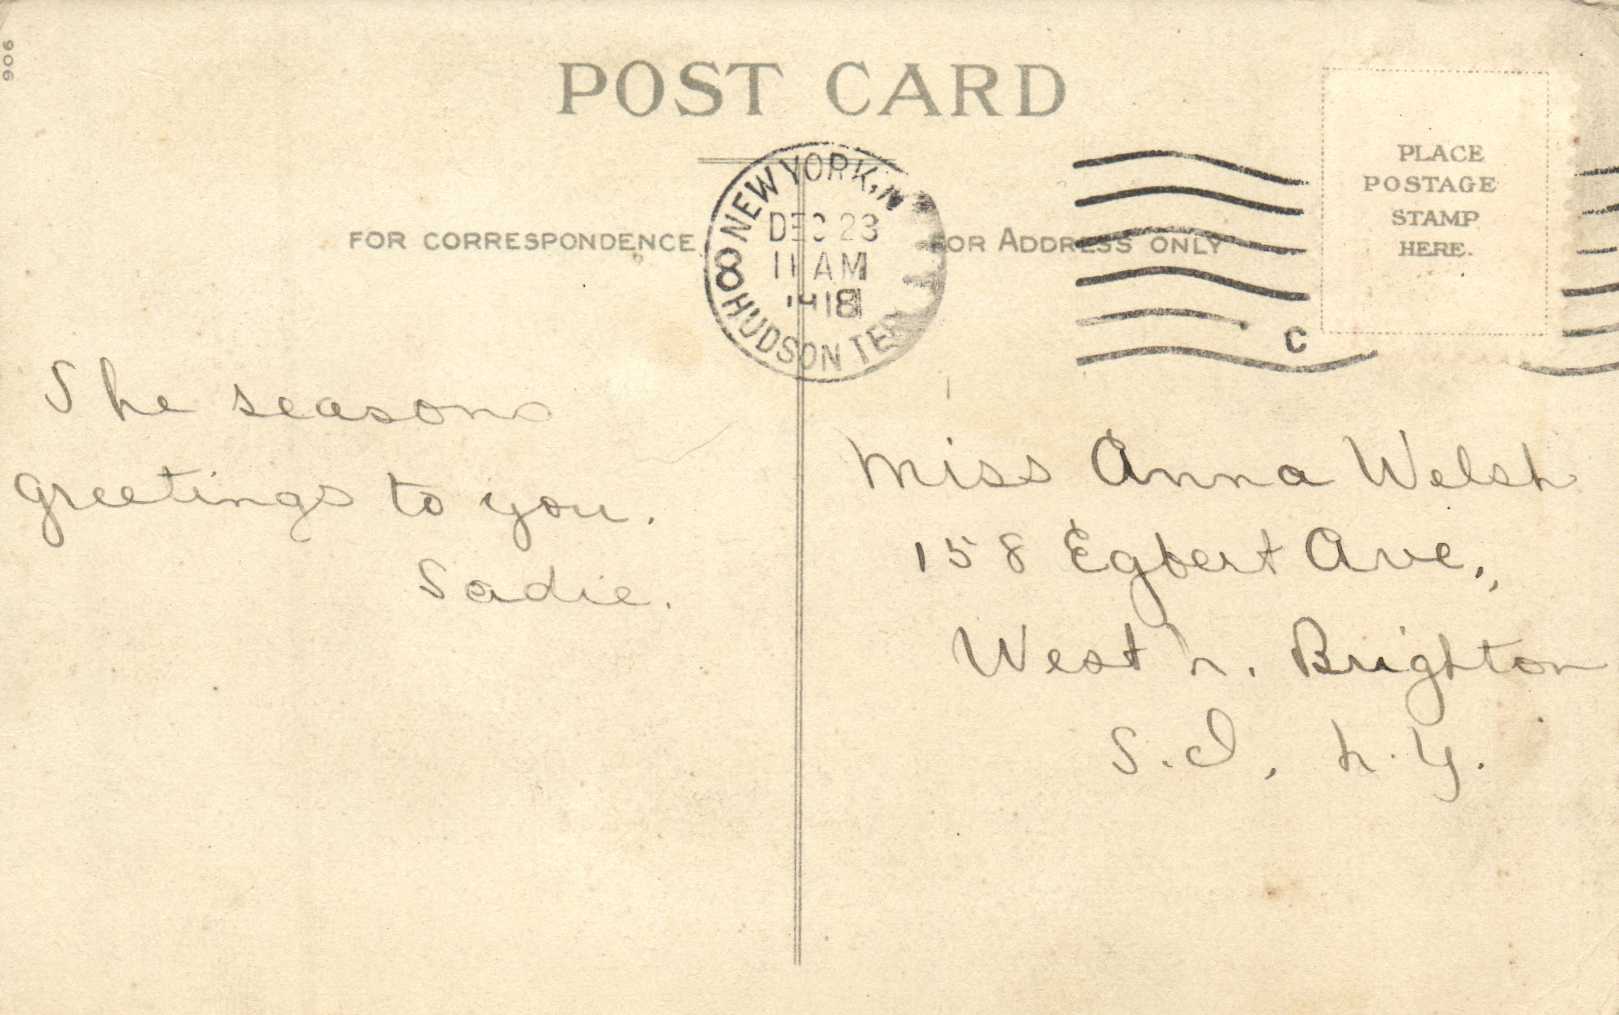 906
POST CARD
NEW YORK, N
DEC 23
11 AM
1918
HUDSON TER
C
PLACE
POSTAGE
STAMP
HERE.
FOR CORRESPONDENCE
FOR ADDRESS ONLY
The seasons
greetings to you.
Sadie.
Miss Anna Welsh
158 Egbert Ave.,
West N. Brighton
S.I., N.Y.